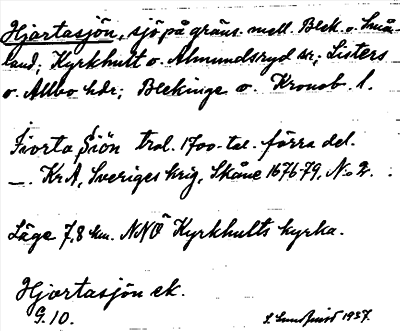 Hjortasjön, sjö på gräns mell. Blek. o. Små-
land; Kyrkhult o. Almundsryd sr; Listers
o. Allbo hdr; Blekinge o. Kronob. l.
Fiorta Siön trol. 1700-tal. förra del.
–. KrA, Sveriges krig, Skåne 1676 79, No 2.
Läge 7,8 km. NNÖ Kyrkhults kyrka.
Hjortasjön ek.
G. 10.
1937.